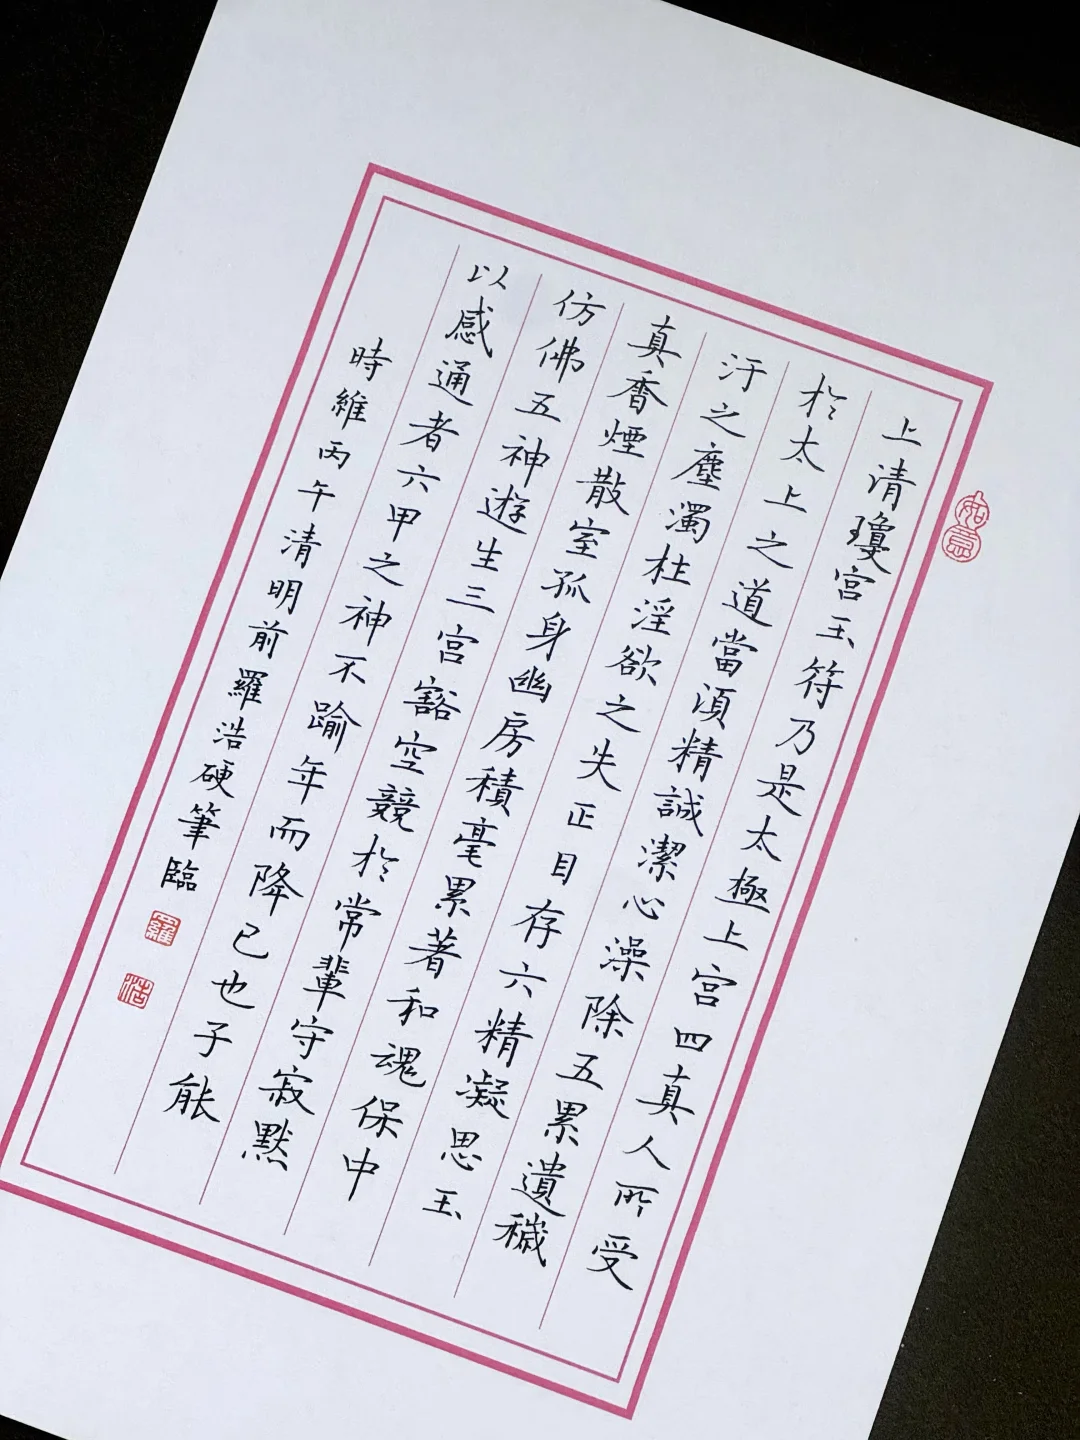 上清瓊宮玉符乃是太極上宮四真人所受
於太上之道當湏精誠潔心澡除五累遺穢
汙之塵濁柱淫欲之失正目存六精凝思玉
真香煙散室孤身幽房積毫累著和魂保中
仿佛五神遊生三宮豁空競於常輩守寂默
以感通者六甲之神不踰年而降已也子能
時維丙午清明前羅浩硬筆臨
如意
羅
浩